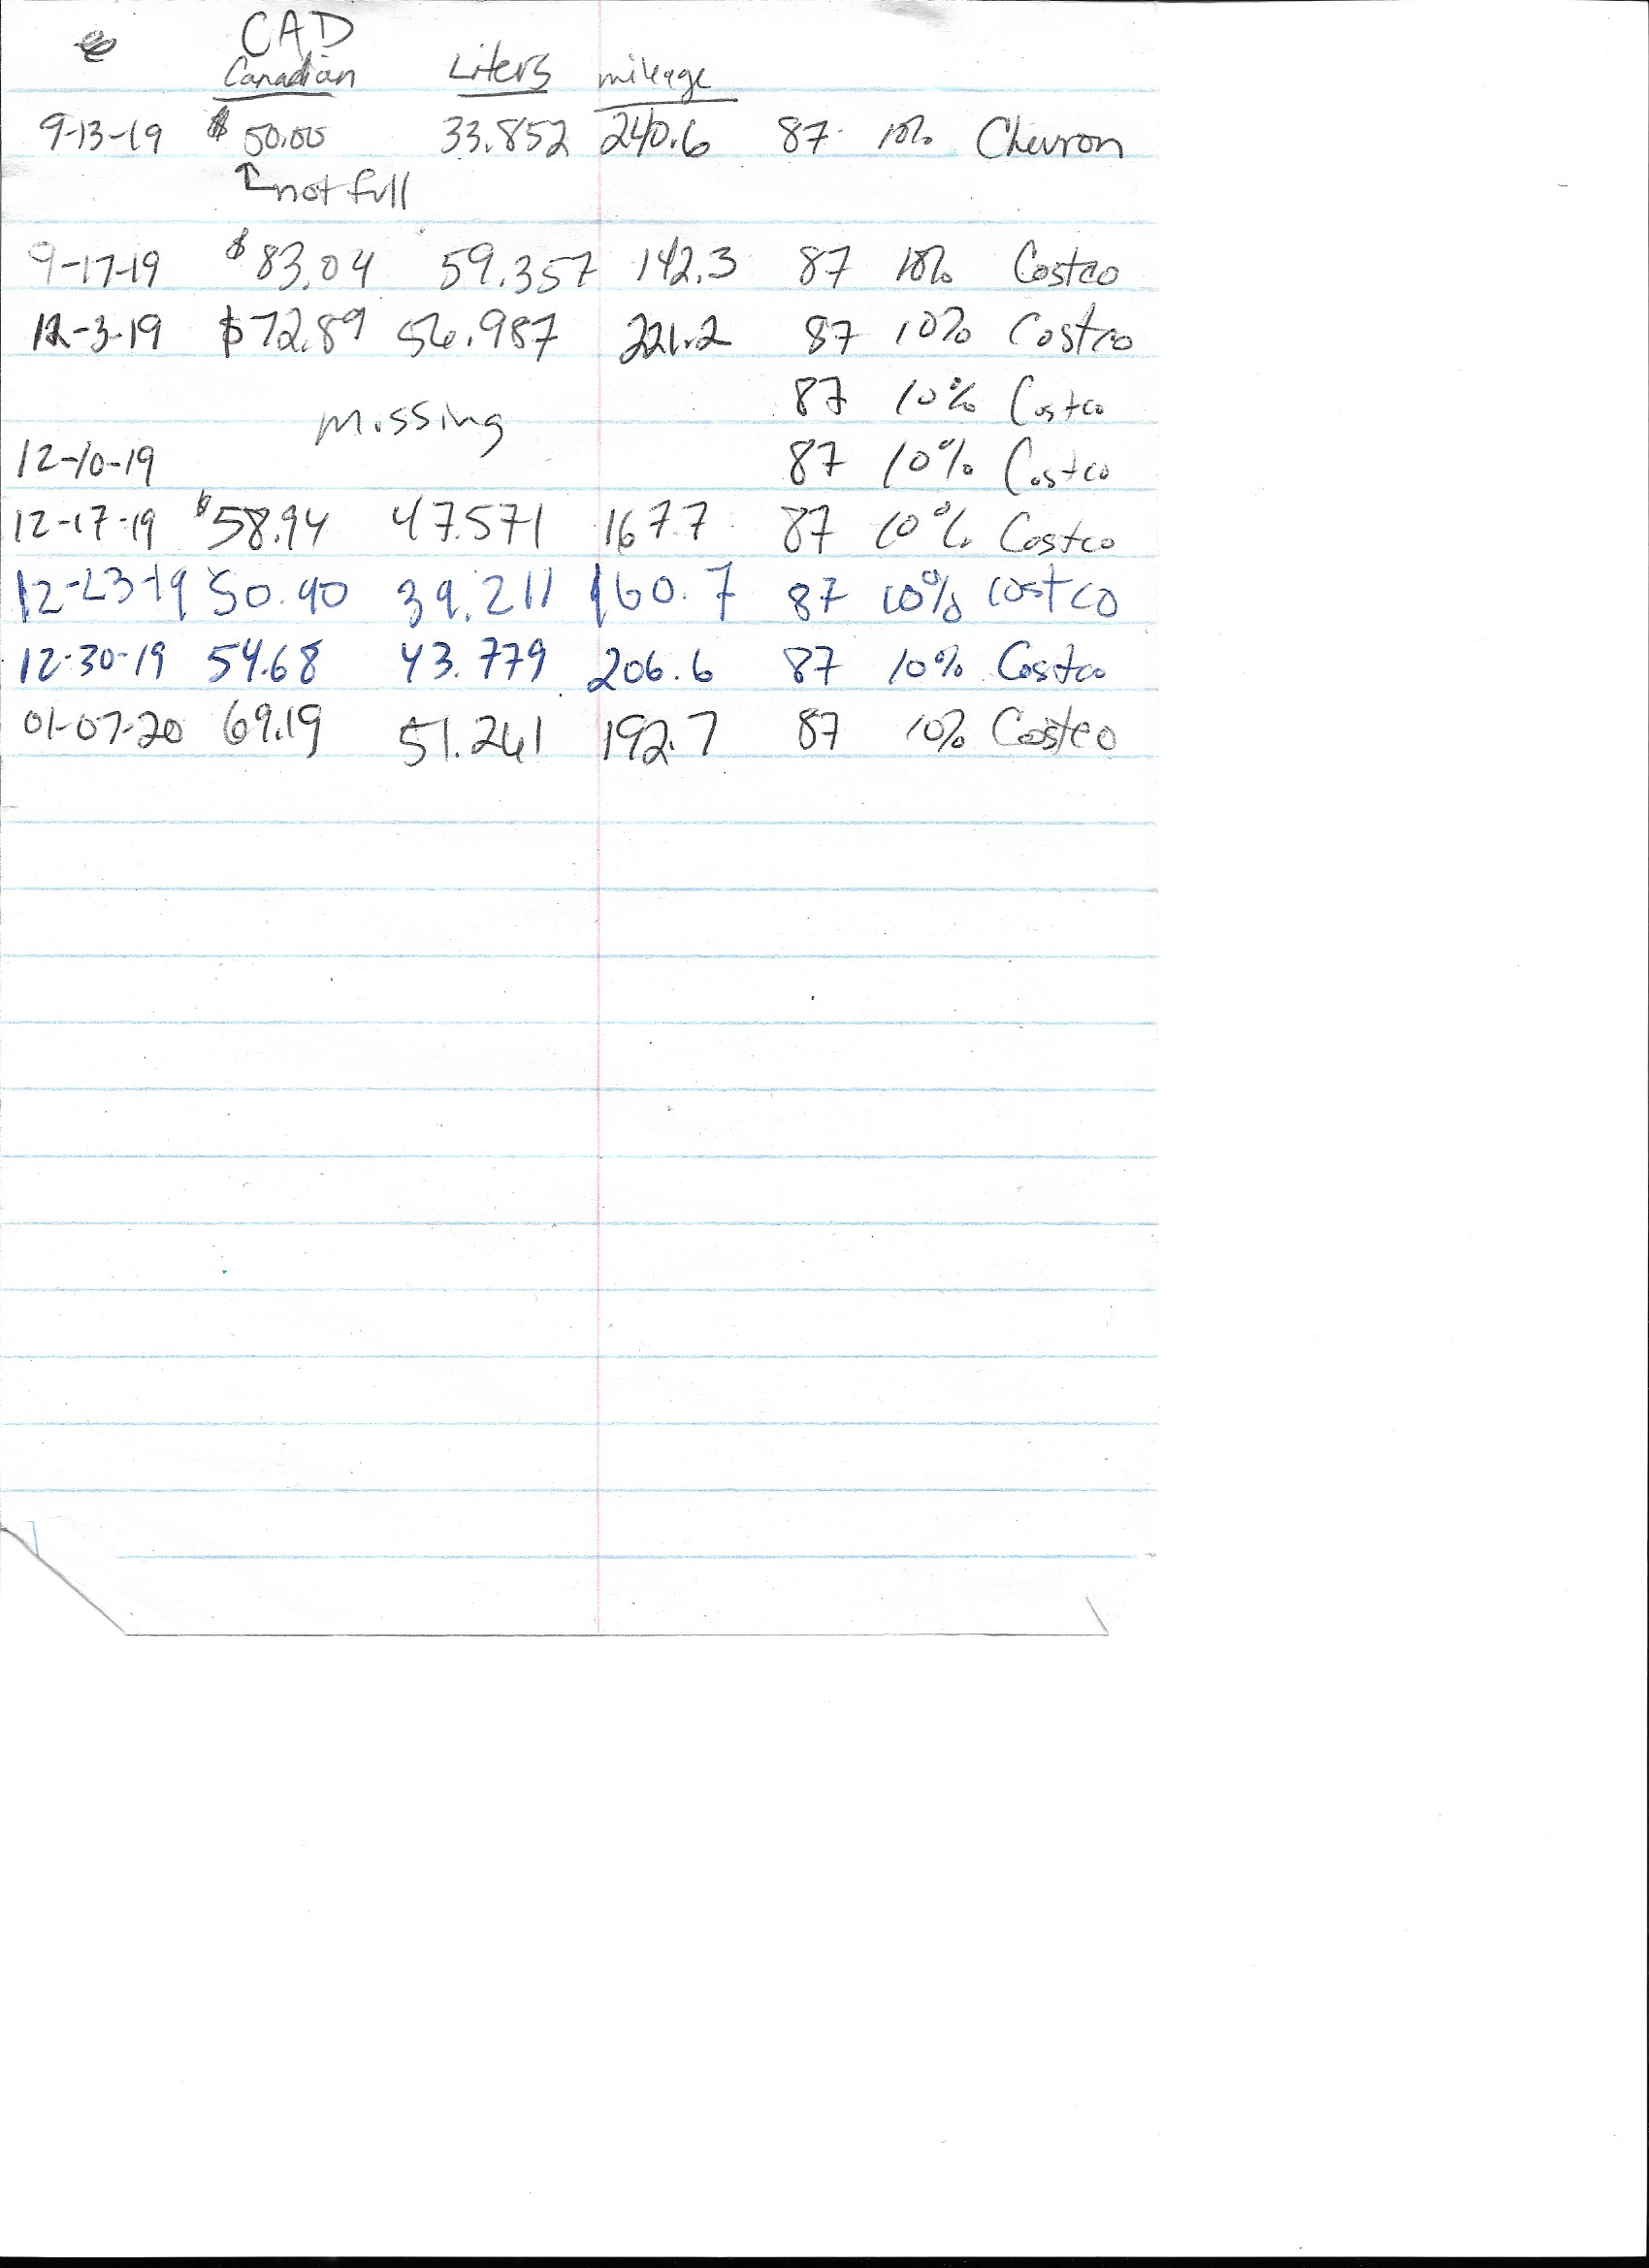 CAD
Canadian Liters mileage
9-13-19 $ 50.00 33.852 240.6 87 10% Chevron
↑ not full
9-17-19 $83.04 59.357 142.3 87 10% Costco
12-3-19 $72.89 56.987 221.2 87 10% Costco
87 10% Costco
missing
12-10-19 87 10% Costco
12-17-19 $58.94 47.571 167.7 87 10% Costco
12-23-19 50.90 39.211 160.7 87 10% costco
12-30-19 54.68 43.779 206.6 87 10% Costco
01-07-20 69.19 51.261 192.7 87 10% Costco